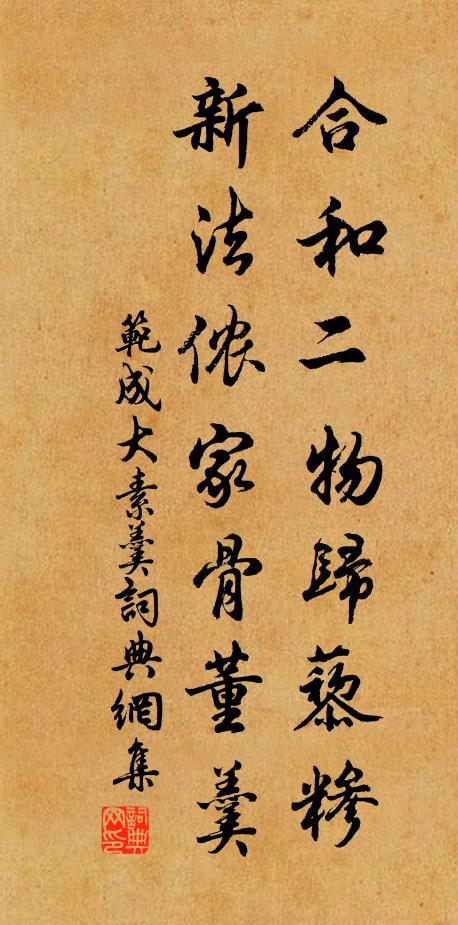 合和二物歸藜糝
新法侬家骨董羹
範成大素羹詞典網集
詞典网印